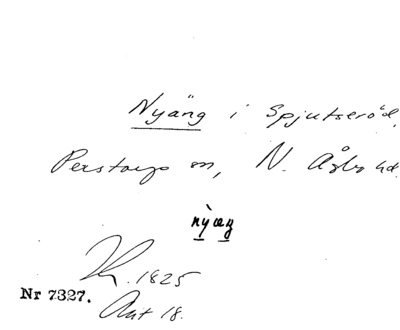 Nyäng i Spjutseröd,
Perstorps sn, N. Åsbo hd.
nỳæŋ
1825
Nr 7327.
Ant 18.